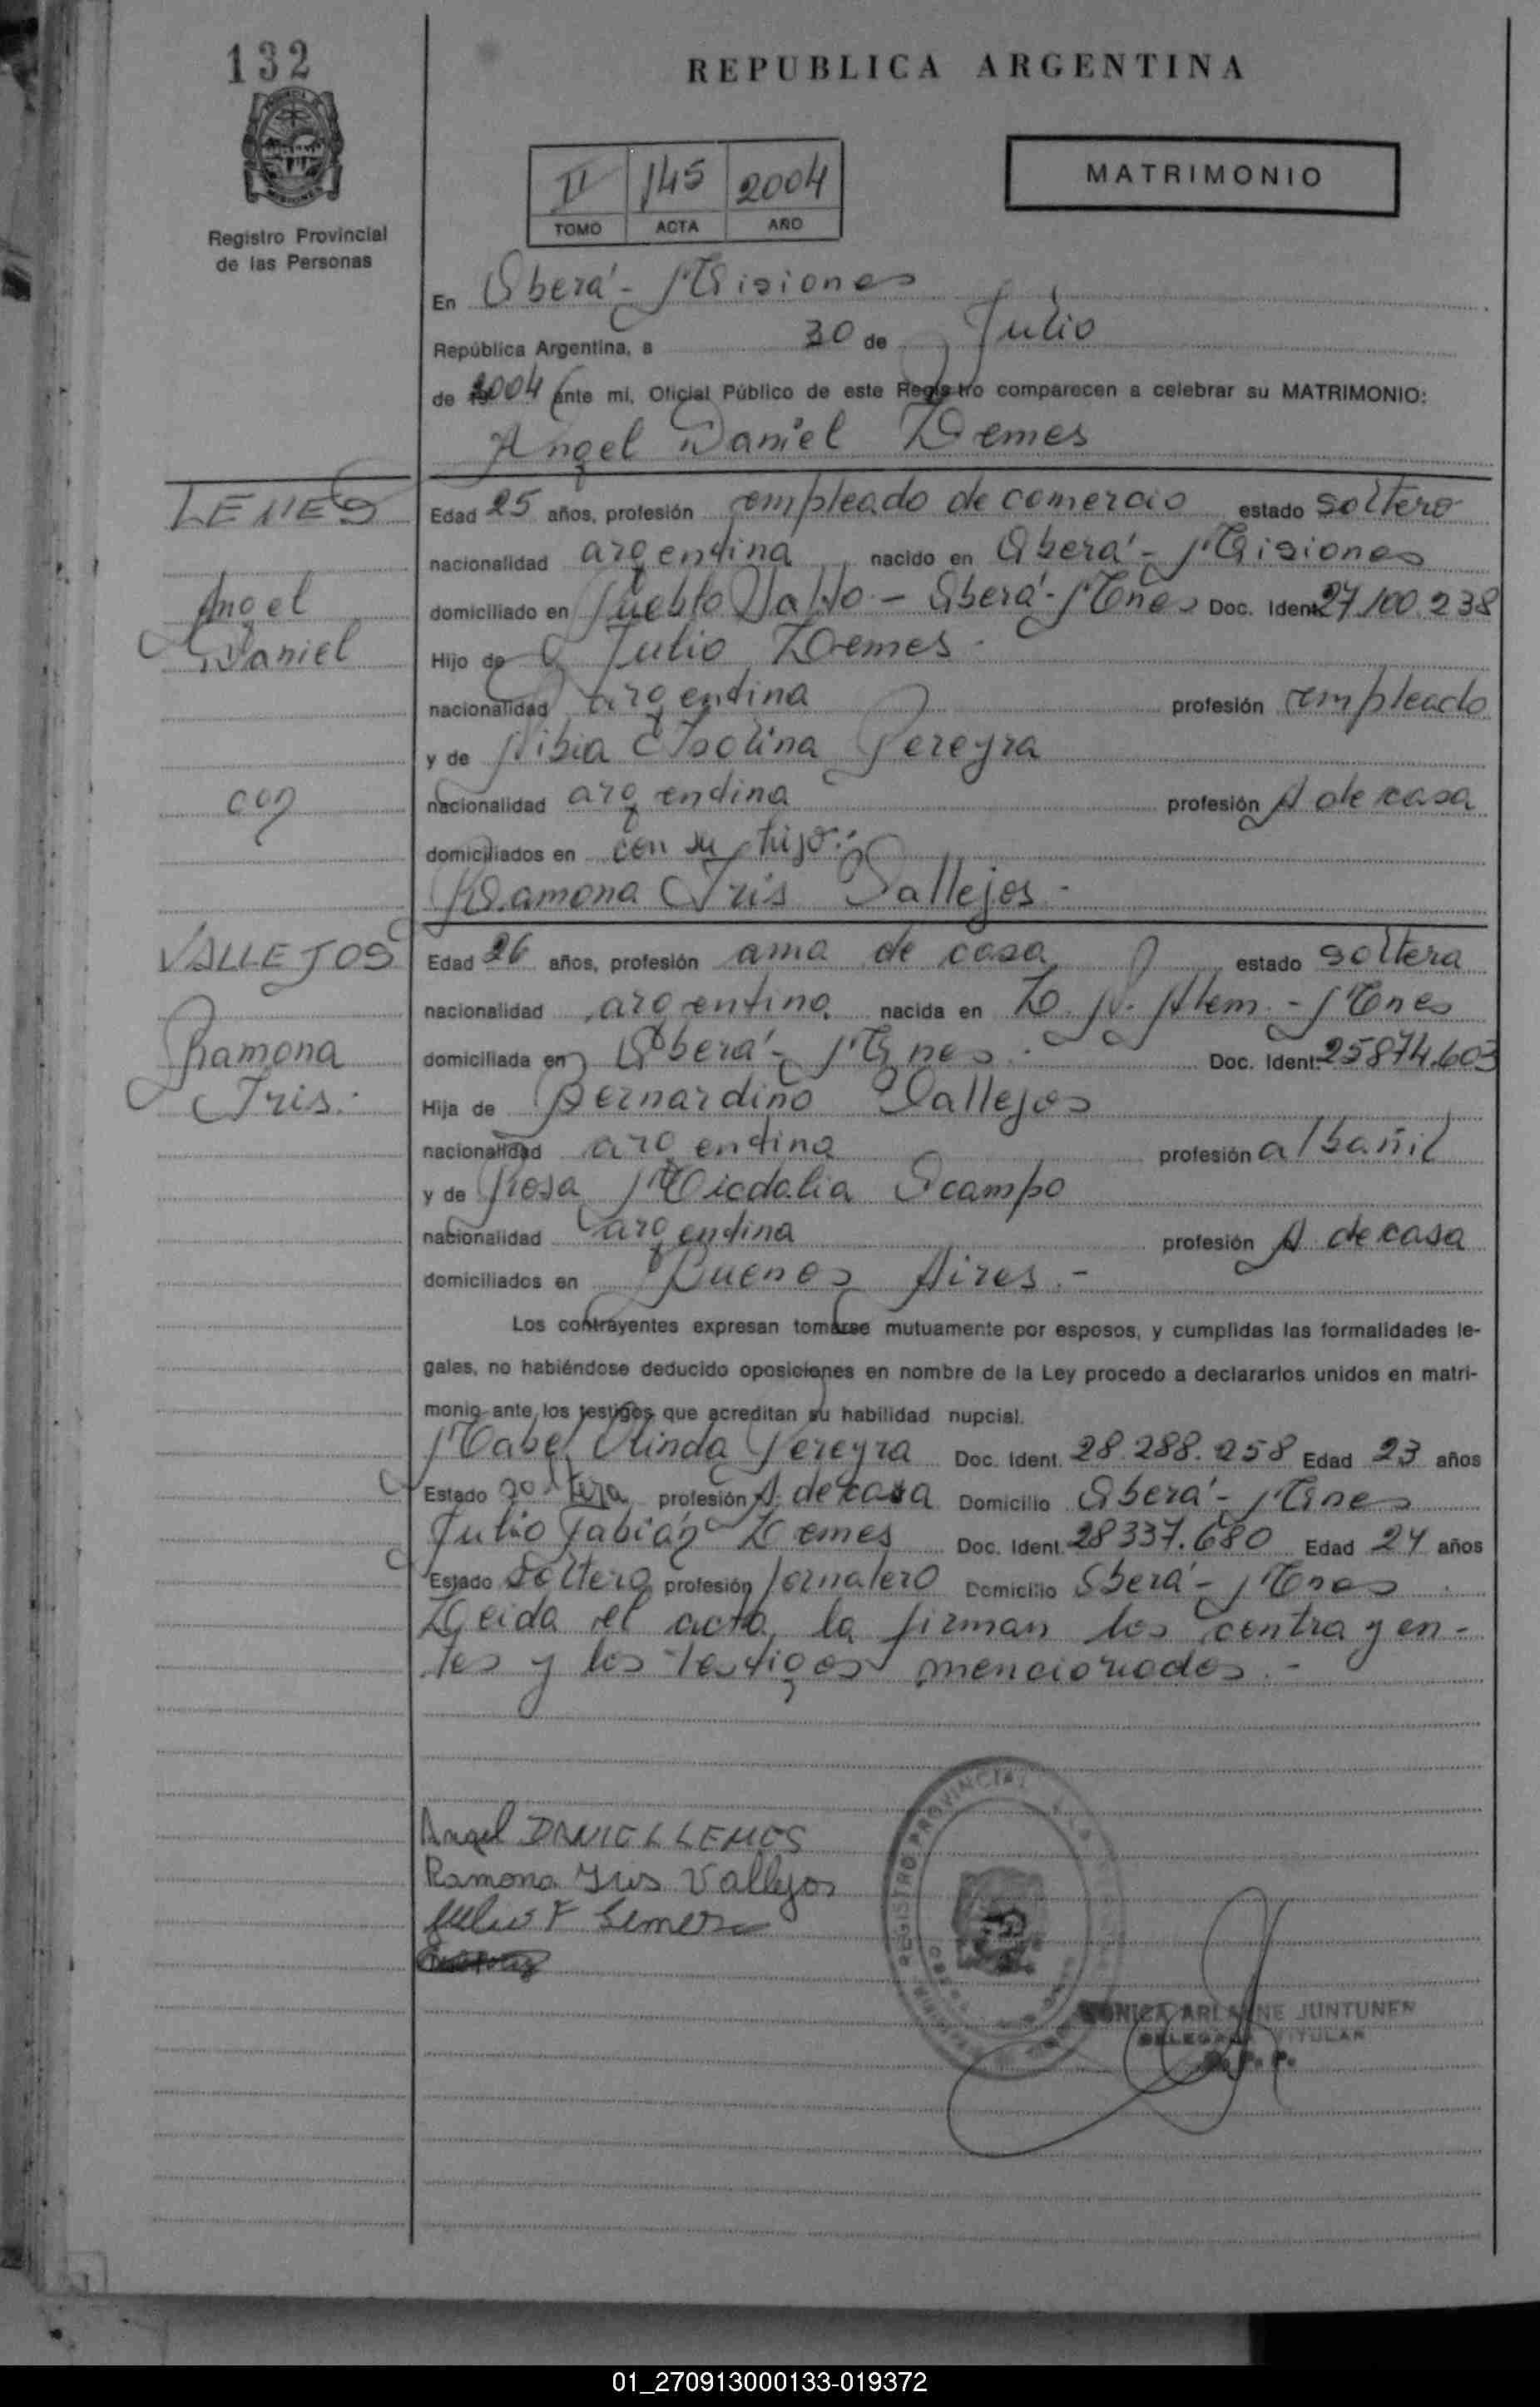 132
REPUBLICA ARGENTINA
II 145 2004
TOMO ACTA AÑO
MATRIMONIO
Registro Provincial
de las Personas
En Oberá - Misiones
República Argentina, a 30 de Julio
de 2004 ante mi, Oficial Público de este Registro comparecen a celebrar su MATRIMONIO:
Angel Daniel Lemes
LEMES
Angel
Daniel
con
Edad 25 años, profesión empleado de comercio estado soltero
nacionalidad argentina nacido en Oberá - Misiones
domiciliado en Pueblo Salto - Oberá - Mnes Doc. Ident. 27.100.238
Hijo de Julio Lemes -
nacionalidad argentina profesión empleado
y de Nibia Isolina Pereyra
nacionalidad argentina profesión A de casa
domiciliados en con su hijo.-
Ramona Iris Vallejos -
VALLEJOS
Ramona
Iris.
Edad 26 años, profesión ama de casa estado soltera
nacionalidad argentina nacida en L. N. Alem. - Mnes
domiciliada en Oberá - Mnes. Doc. Ident. 25874.603
Hija de Bernardino Vallejos
nacionalidad argentina profesión albañil
y de Rosa Ocampo
nacionalidad argentina profesión A de casa
domiciliados en Buenos Aires.-
Los contrayentes expresan tomarse mutuamente por esposos, y cumplidas las formalidades le-
gales, no habiéndose deducido oposiciones en nombre de la Ley procedo a declararlos unidos en matri-
monio ante los testigos que acreditan su habilidad nupcial.
Mabel Olinda Pereyra Doc. Ident. 28.288.258 Edad 23 años
Estado soltera profesión A. de casa Domicilio Oberá - Mnes
Julio Fabián Lemes Doc. Ident. 28337.680 Edad 24 años
Estado soltero profesión jornalero Domicilio Oberá - Mnes
Leida el acta, la firman los contrayen-
tes y los testigos mencionados.-
Angel DANIEL LEMES
Ramona Iris Vallejos
Julio F Lemes
REGISTRO PROVINCIAL
MONICA ARLAINE JUNTUNEN
DELEGADA TITULAR
R. P. P.
01_270913000133-019372